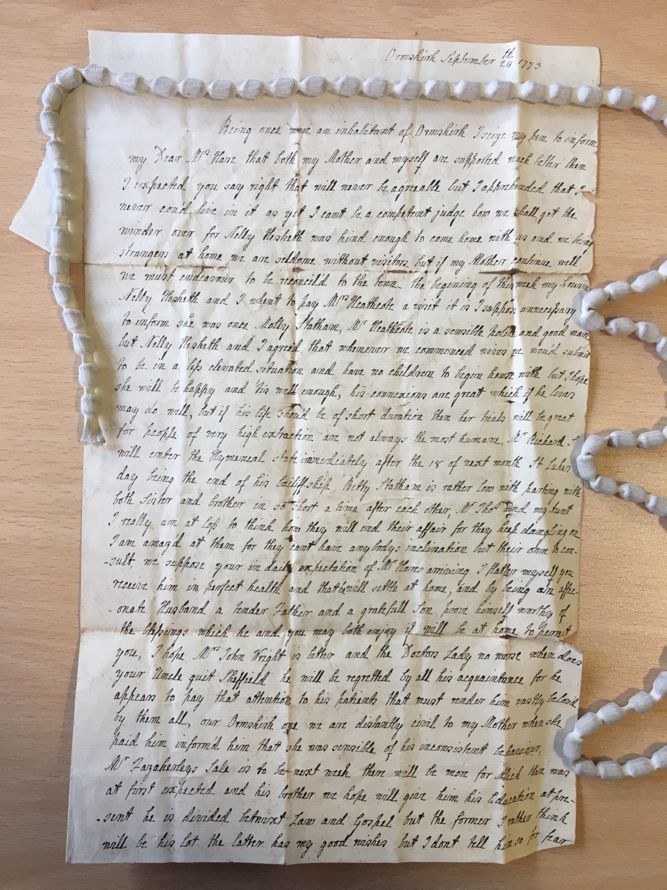 Ormskirk September 24th 1773
Being once more an inhabitant of Ormskirk I seize my pen to inform
my Dear Mrs Hare that both my Mother and myself are supported much better than
I expected, you say right that will never be agreable but I apprehended that I
never could live in it as yet I cant be a competent judge how we shall get the
winder over for Nelly Hesketh was kind enough to come home with us and we being
strangers at home we are seldome without visitors but if my Mother continue well
we must endeavour to be reconcil'd to the town the begining of this week my Cousin
Nelly Hesketh and I went to pay Mrs Heathcote a visit it is I suppose unnecessary
to inform she was once Molly Statham, Mr Heathcote is a sensible polite and good man
but Nelly Hesketh and I agreed that whenever we commenced wives we wou'd submit
to be in a less elevated situation and have no children to begin house with but I hope
she will be happy and his well enough, his connexions are great which if he lives
may do well, but if his life should be of short duration then her trials will be great
for people of very high extraction are not always the most humane, Mr Richard S
will enter the Hymeneal state immediately after the 18 of next month St Lukes
day being the end of his bailiffship Betty Statham is rather low with parting with
both sister and brother in so short a time after each other, Mr Thos and my Aunt
I really am at loss to think how they will end their affair for they keep dangling on
I am amaz'd at them for they cant have any bodys inclination but their own to con-
-sult, we suppose your in daily expectation of Mr Hares arriving I flatter myself you
receive him in perfect health and that will settle at home, and by being an affec-
-onate Husband a tender Father and a grateful Son prove himself worthy of
the blessings which he and you may both enjoy if will be at home to permit
you, I hope Mrs John Wright is better and the Doctors Lady no worse when does
your Uncle quit Sheffield he will be regretted by all his acquaintance for he
appears to pay that attention to his patients that must render him vastly belov'd
by them all, our Ormskirk one we are distantly civil to my Mother when she
paid him inform'd him that she was sensible of his inconsistent behaviour,
Mr Fazakerleys Sale is to be next week there will be more for than was
at first expected and his brother we hope will give him his Education at pre-
-sent he is divided betwixt Law and Gospel but the former I rather think
will be his lot the latter has my good wishes but I dont tell him so for fear